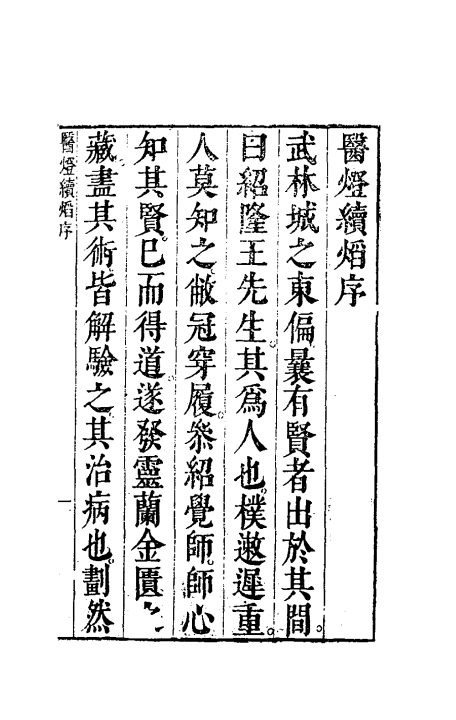 醫燈續焰序
武林城之東偏曩有賢者出於其間。
曰紹隆王先生。其為人也。樸遬遲重。
人莫知之。敝冠穿履。叅紹覺師。師心
知其賢。已而得道。遂發靈蘭金匱
藏盡其術。皆解驗之。其治病也。劃然
醫燈續焰序
一